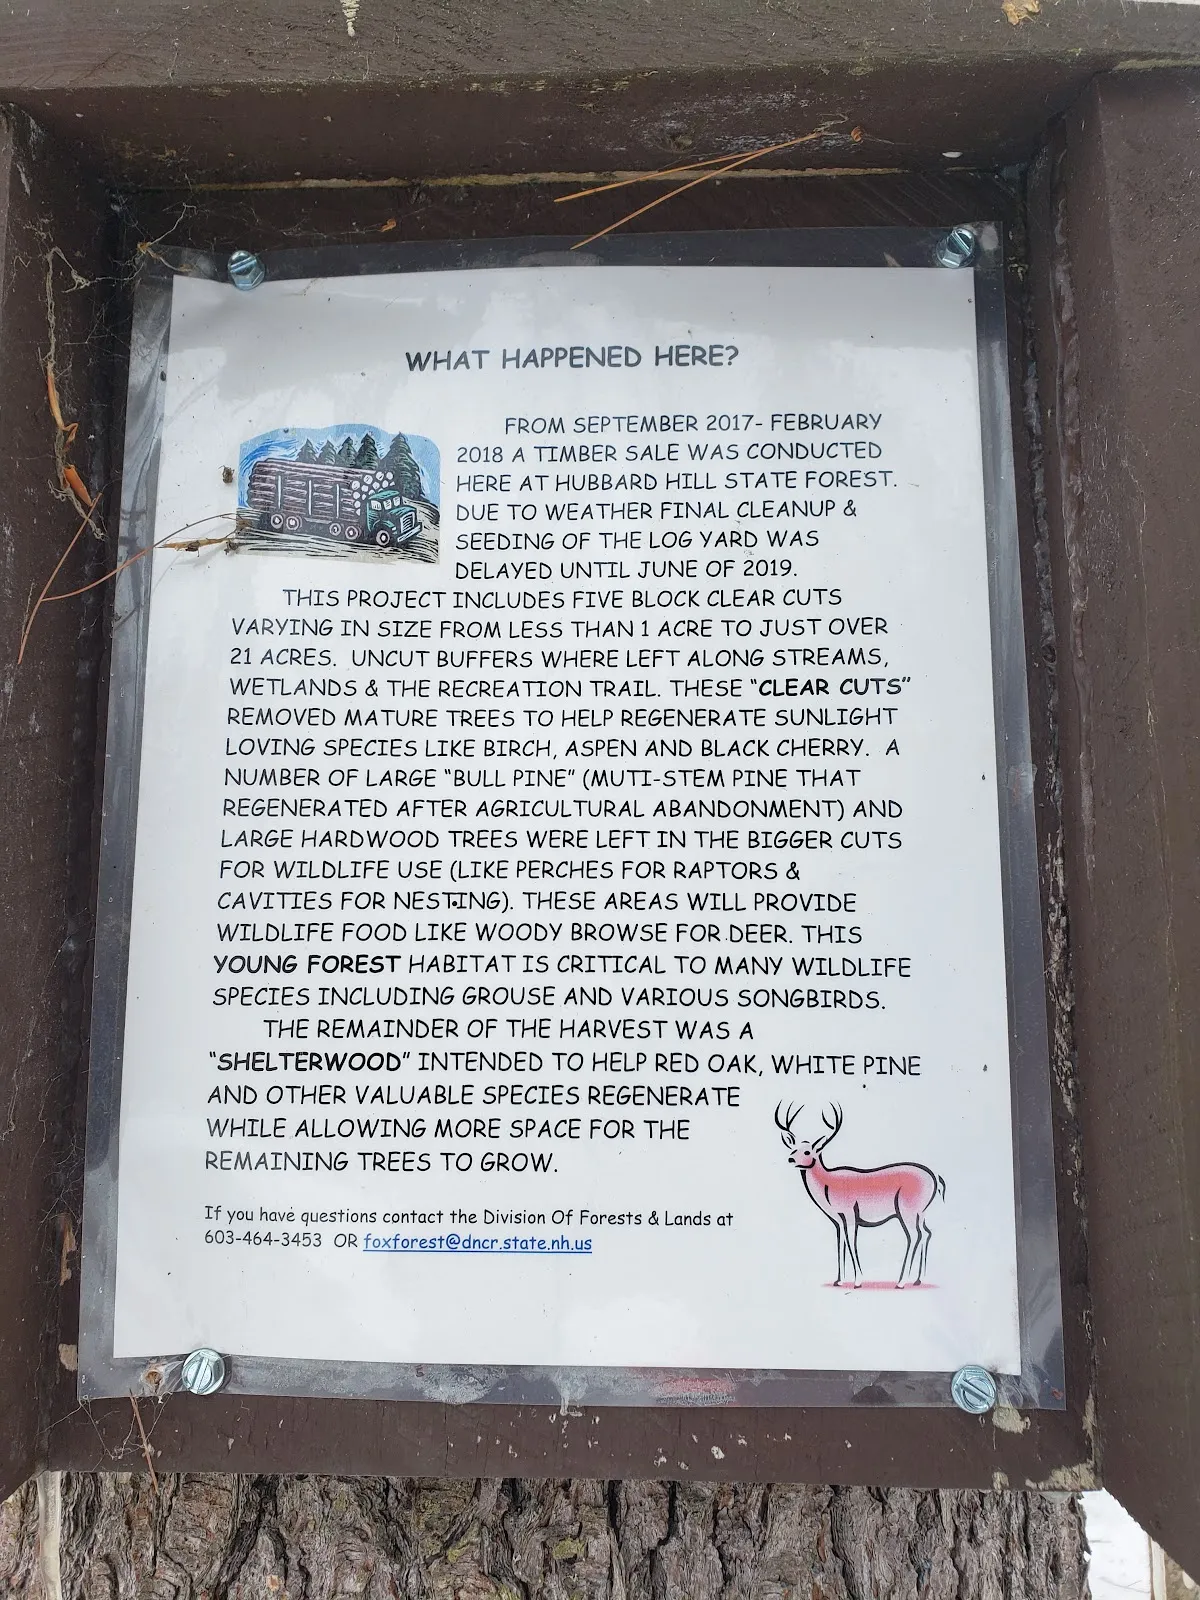 WHAT HAPPENED HERE?
FROM SEPTEMBER 2017- FEBRUARY
2018 A TIMBER SALE WAS CONDUCTED
HERE AT HUBBARD HILL STATE FOREST.
DUE TO WEATHER FINAL CLEANUP &
SEEDING OF THE LOG YARD WAS
DELAYED UNTIL JUNE OF 2019.
THIS PROJECT INCLUDES FIVE BLOCK CLEAR CUTS
VARYING IN SIZE FROM LESS THAN 1 ACRE TO JUST OVER
21 ACRES. UNCUT BUFFERS WHERE LEFT ALONG STREAMS,
WETLANDS & THE RECREATION TRAIL. THESE "CLEAR CUTS"
REMOVED MATURE TREES TO HELP REGENERATE SUNLIGHT
LOVING SPECIES LIKE BIRCH, ASPEN AND BLACK CHERRY. A
NUMBER OF LARGE "BULL PINE" (MUTI-STEM PINE THAT
REGENERATED AFTER AGRICULTURAL ABANDONMENT) AND
LARGE HARDWOOD TREES WERE LEFT IN THE BIGGER CUTS
FOR WILDLIFE USE (LIKE PERCHES FOR RAPTORS &
CAVITIES FOR NESTING). THESE AREAS WILL PROVIDE
WILDLIFE FOOD LIKE WOODY BROWSE FOR DEER. THIS
YOUNG FOREST HABITAT IS CRITICAL TO MANY WILDLIFE
SPECIES INCLUDING GROUSE AND VARIOUS SONGBIRDS.
THE REMAINDER OF THE HARVEST WAS A
"SHELTERWOOD" INTENDED TO HELP RED OAK, WHITE PINE
AND OTHER VALUABLE SPECIES REGENERATE
WHILE ALLOWING MORE SPACE FOR THE
REMAINING TREES TO GROW.
If you have questions contact the Division Of Forests & Lands at
603-464-3453 OR foxforest@dncr.state.nh.us